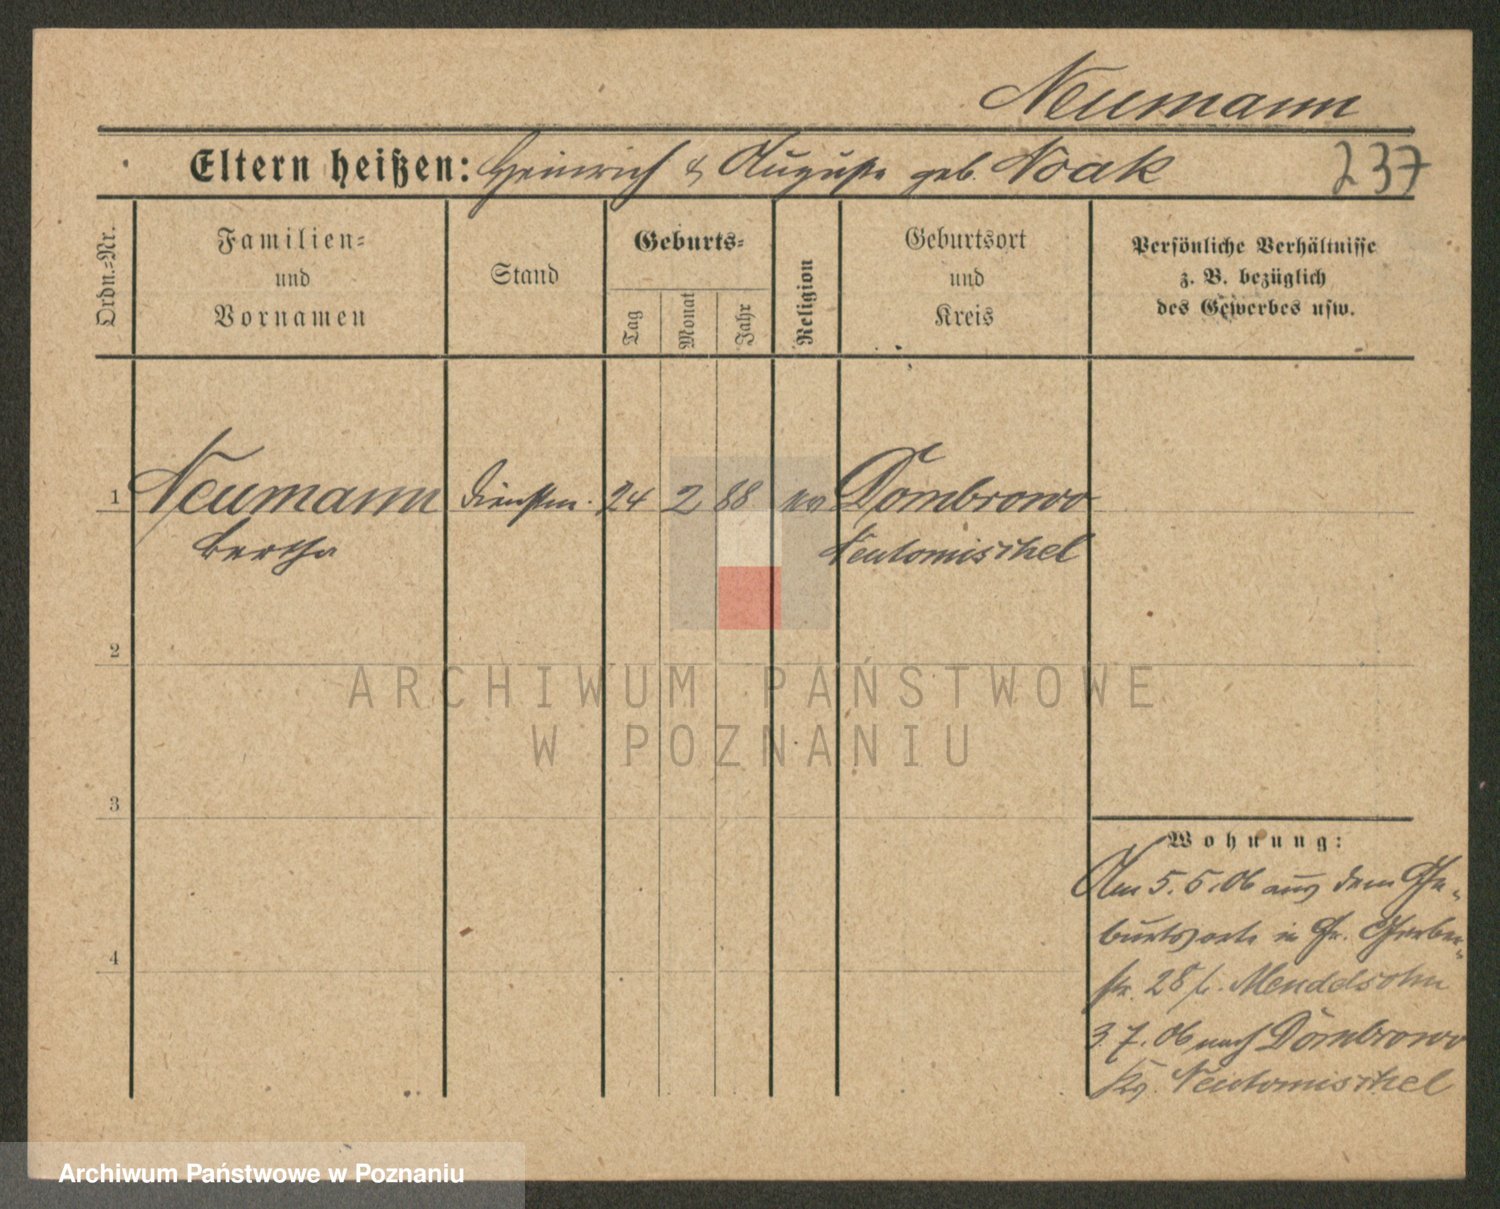 Neumann
Eltern heißen: Heinrich & Auguste geb. Noak
237
Ordn.=Nr.
Familien=
und
Vornamen
Stand
Geburts=
Tag
Monat
Jahr
Religion
Geburtsort
und
Kreis
Persönliche Verhältnisse
z. B. bezüglich
des Gewerbes usw.
1 Neumann Dienstm. 24 2 88 ev Dombrowo
Bertha Neutomischel
2
ARCHIWUM PAŃSTWOWE
W POZNANIU
3
Wohnung:
Am 5.5.06 aus dem Ge-
burtsorte in Gr. Gerber-
str. 28 b. Mendelsohn
3.7.06 nach Dombrowo
Kr. Neutomischel
4
Archiwum Państwowe w Poznaniu